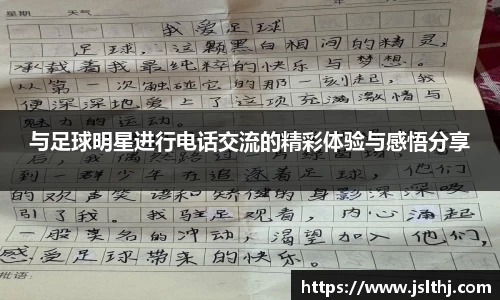 星期 天气
我爱足球
足球，这颗黑白相间的精灵，
承载着我最纯粹的快乐与梦想。
从第一次触碰它的那一刻起，我
便深深地爱上了这项充满激情与
魅力的运动。
与足球明星进行电话交流的精彩体验与感悟分享
到一群少年在追逐着足球，他们
的欢声笑语和矫健的身影深深吸
引了我。我驻足观看，内心涌起
一股莫名的冲动，渴望加入他们，
感受足球带来的快乐。
批语：
https://www.jslthj.com